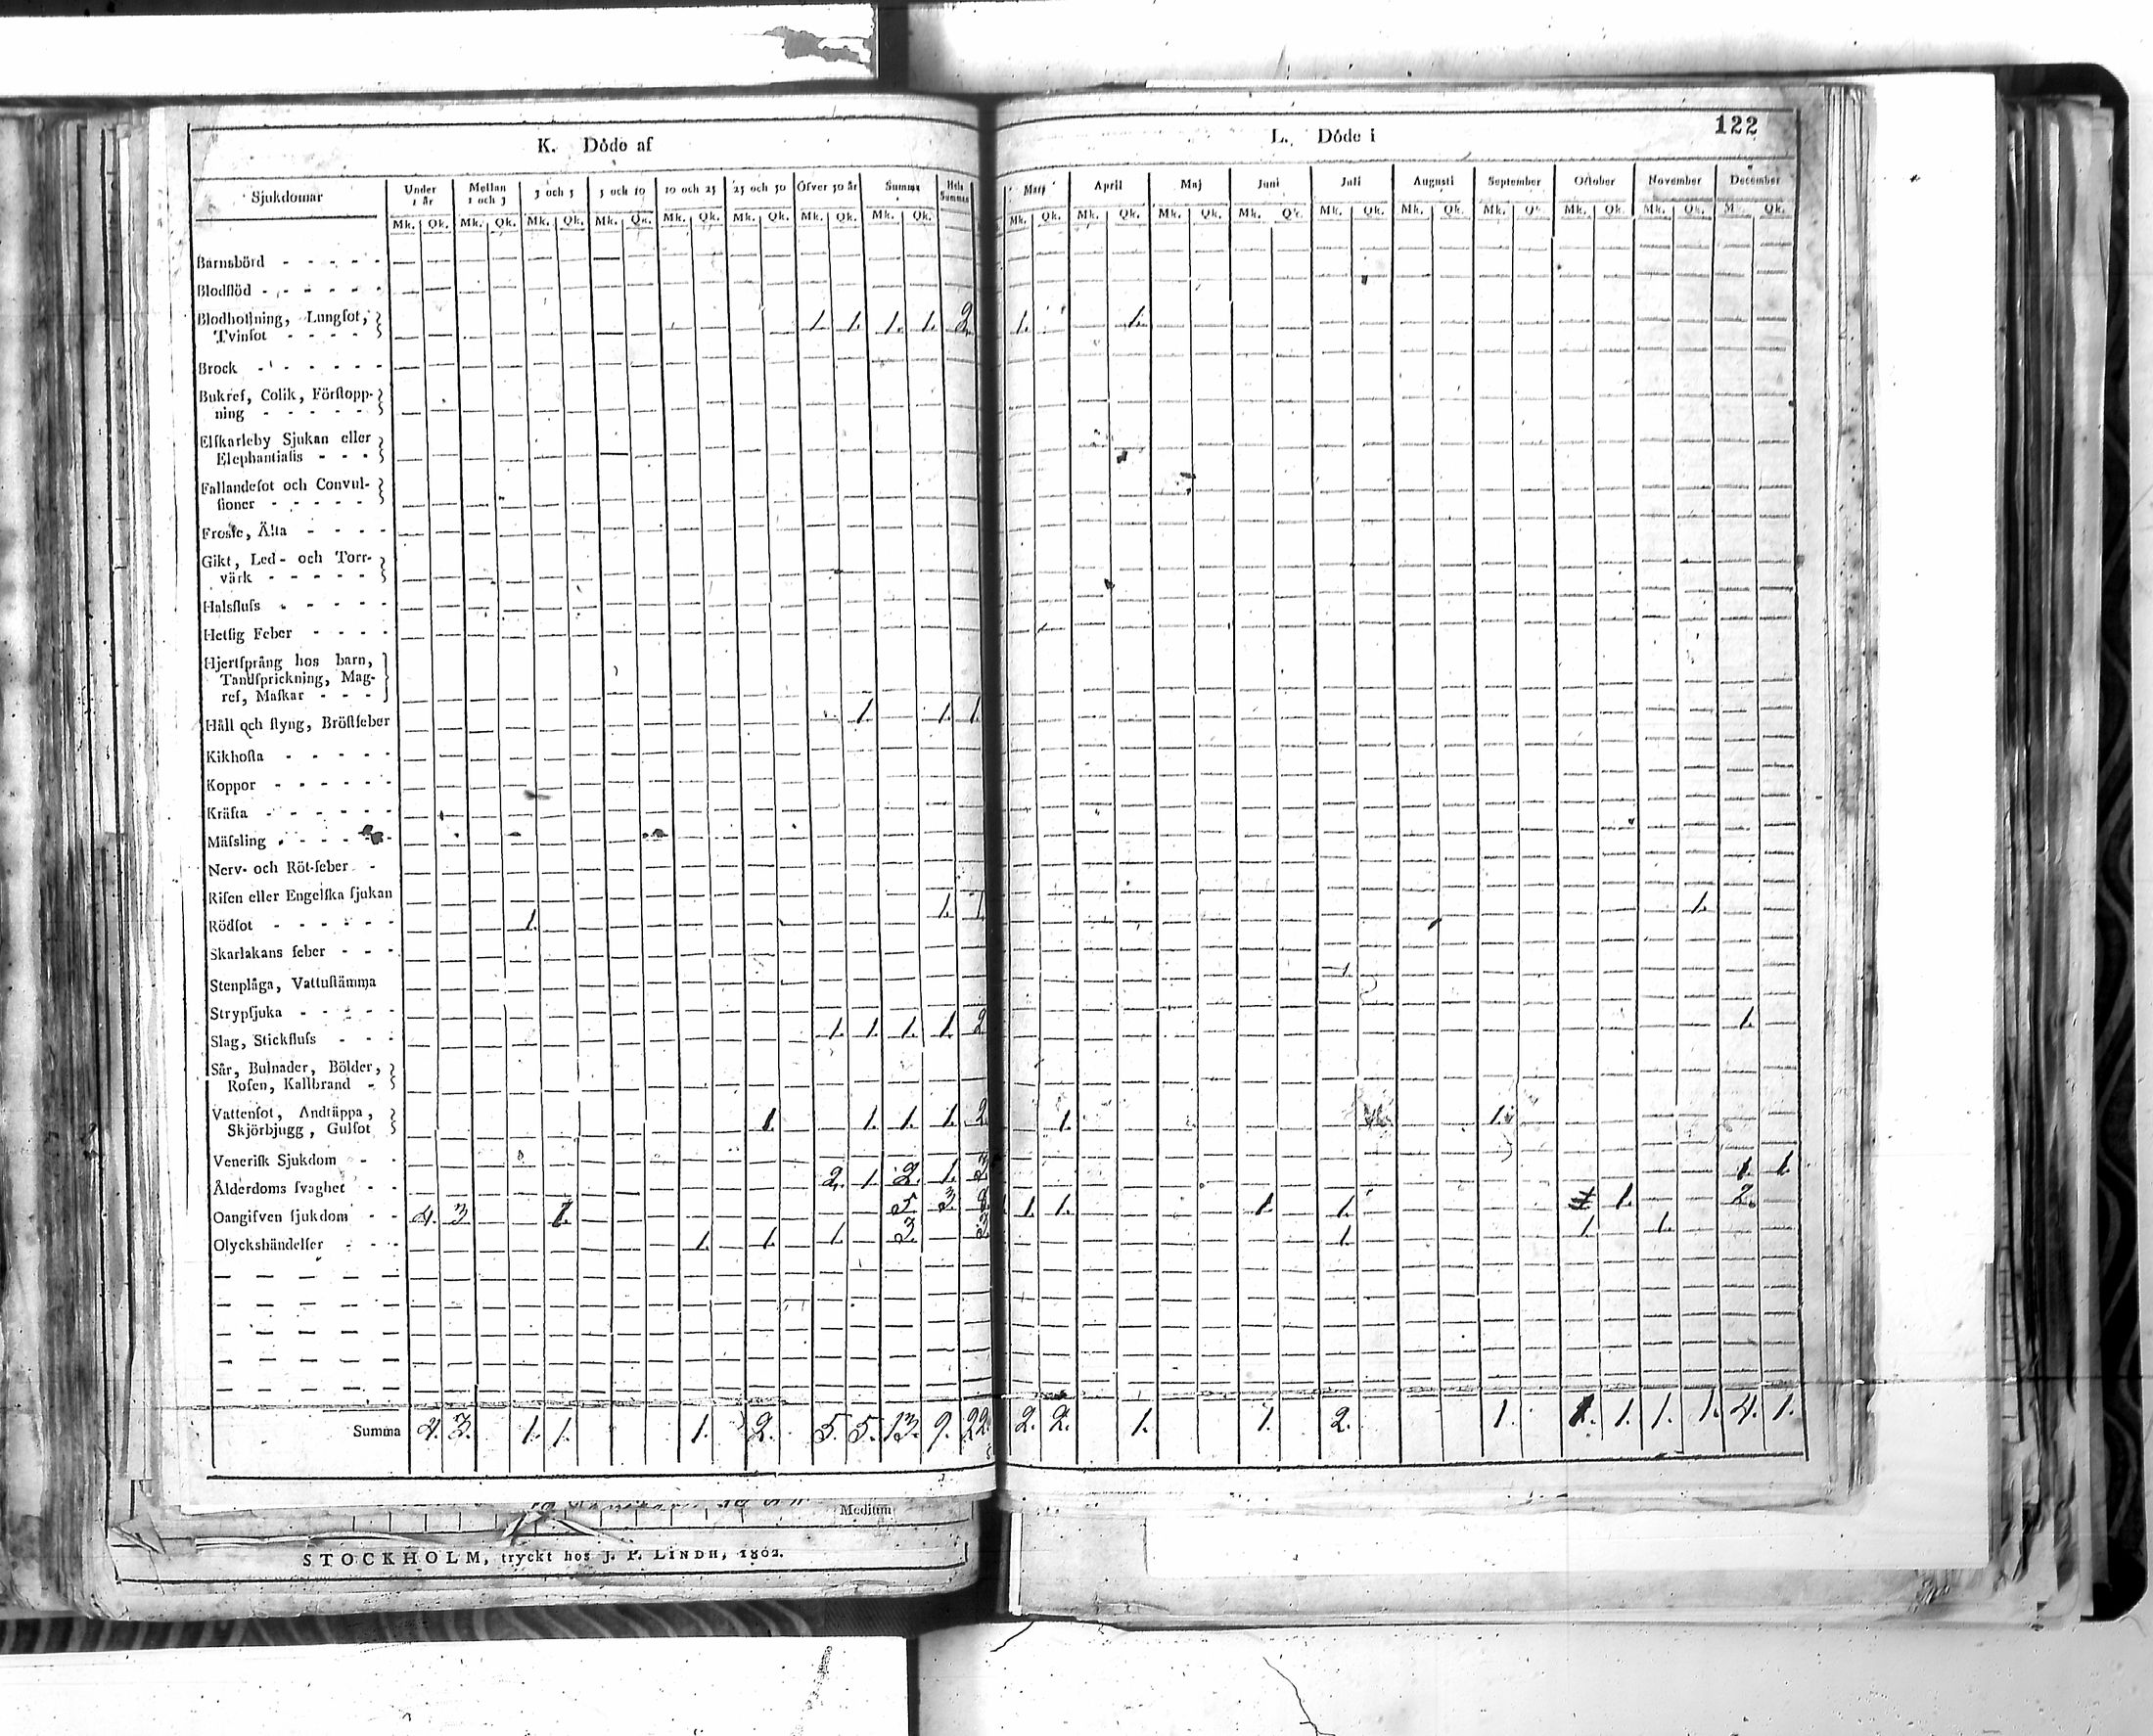 122
K. Döde af
L. Döde i
Sjukdomar
Under 1 år
Mellan 1 och 3
3 och 5
5 och 10
10 och 25
25 och 50
Öfver 50 år
Summa
Hela Summan
Mars
April
Maj
Juni
Juli
Augusti
September
October
November
December
Mk. Qk. Mk. Qk. Mk. Qk. Mk. Qk. Mk. Qk. Mk. Qk. Mk. Qk. Mk. Qk.
Mk. Qk. Mk. Qk. Mk. Qk. Mk. Qk. Mk. Qk. Mk. Qk. Mk. Qk. Mk. Qk. Qk.
Barnsbörd
Blodflöd
Blodhostning, Lungsot,
Tvinsot 1. 1. 1. 1. 2. 1. 1.
Brock
Bukref, Colik, Förstopp-
ning
Elfkarleby Sjukan eller
Elephantiasis
Fallandesot och Convul-
sioner
Frossa, Älta
Gikt, Led- och Torr-
värk
Halsfluss
Hetsig Feber
Hjertsprång hos barn,
Tandsprickning, Mag-
ref, Maskar
Håll och styng, Bröstfeber 1. 1. 1.
Kikhosta
Koppor
Kräfta
Mässling
Nerv- och Röt-feber
Risen eller Engelska sjukan
Rödsot 1. 1. 1. 1.
Skarlakans feber
Stenplåga, Vattustämma
Strypsjuka
Slag, Stickfluss 1. 1. 1. 1. 2 1.
Sår, Bulnader, Bölder,
Rosen, Kallbrand
Vattensot, Andtäppa,
Skjörbjugg, Gulsot 1. 1. 1. 1. 2. 1. 1.
Venerisk Sjukdom
Ålderdoms svaghet 2. 1. 2. 1. 3 1. 1.
Oangifven sjukdom 4. 3. 1. 5. 3. 8. 1. 1. 1. 1. 1. 2.
Olyckshändelser 1. 1. 1. 3. 3. 1. 1. 1.
Summa 4. 3. 1. 1. 1. 2. 5. 5. 13. 9. 22. 2. 2. 1. 1. 2. 1. 1. 1. 1. 1. 4. 1.
Medium
STOCKHOLM, tryckt hos J. P. LINDH, 1802.